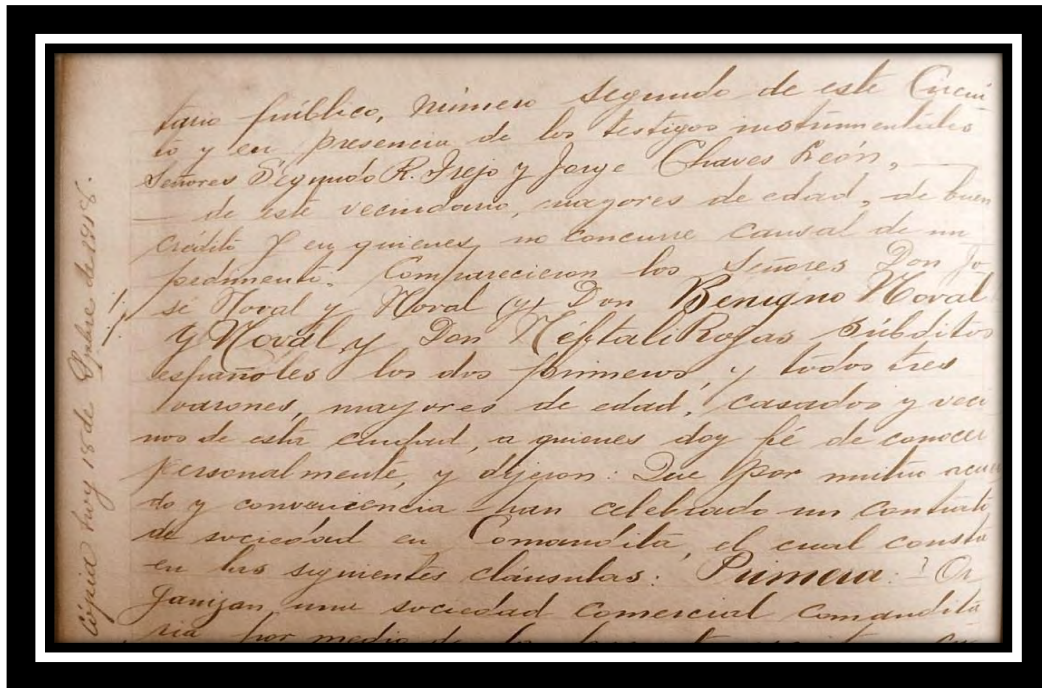 tario público, número segundo de este Circui
to y en presencia de los testigos instrumentales
Señores Segundo R. Trejo y Jorge Chaves León,
de este vecindario, mayores de edad, de buen
crédito y en quienes no concurre causal de im
pedimento. Comparecieron los Señores Don Jo
sé Noval y Noval (y) Don Benigno Noval
y Noval y Don Néftali Rojas súbditos
españoles los dos primeros, y todos tres
varones, mayores de edad, casados y veci
nos de esta ciudad, a quienes doy fé de conocer
personalmente, y dijeron: Que por mutuo acuer
do y conveniencia han celebrado un contrato
de sociedad en Comandita, el cual consta
en las siguientes cláusulas: Primera: Or
ganizan una sociedad comercial comandita
ria por medio de
Cópia hoy 18 de de 1918.